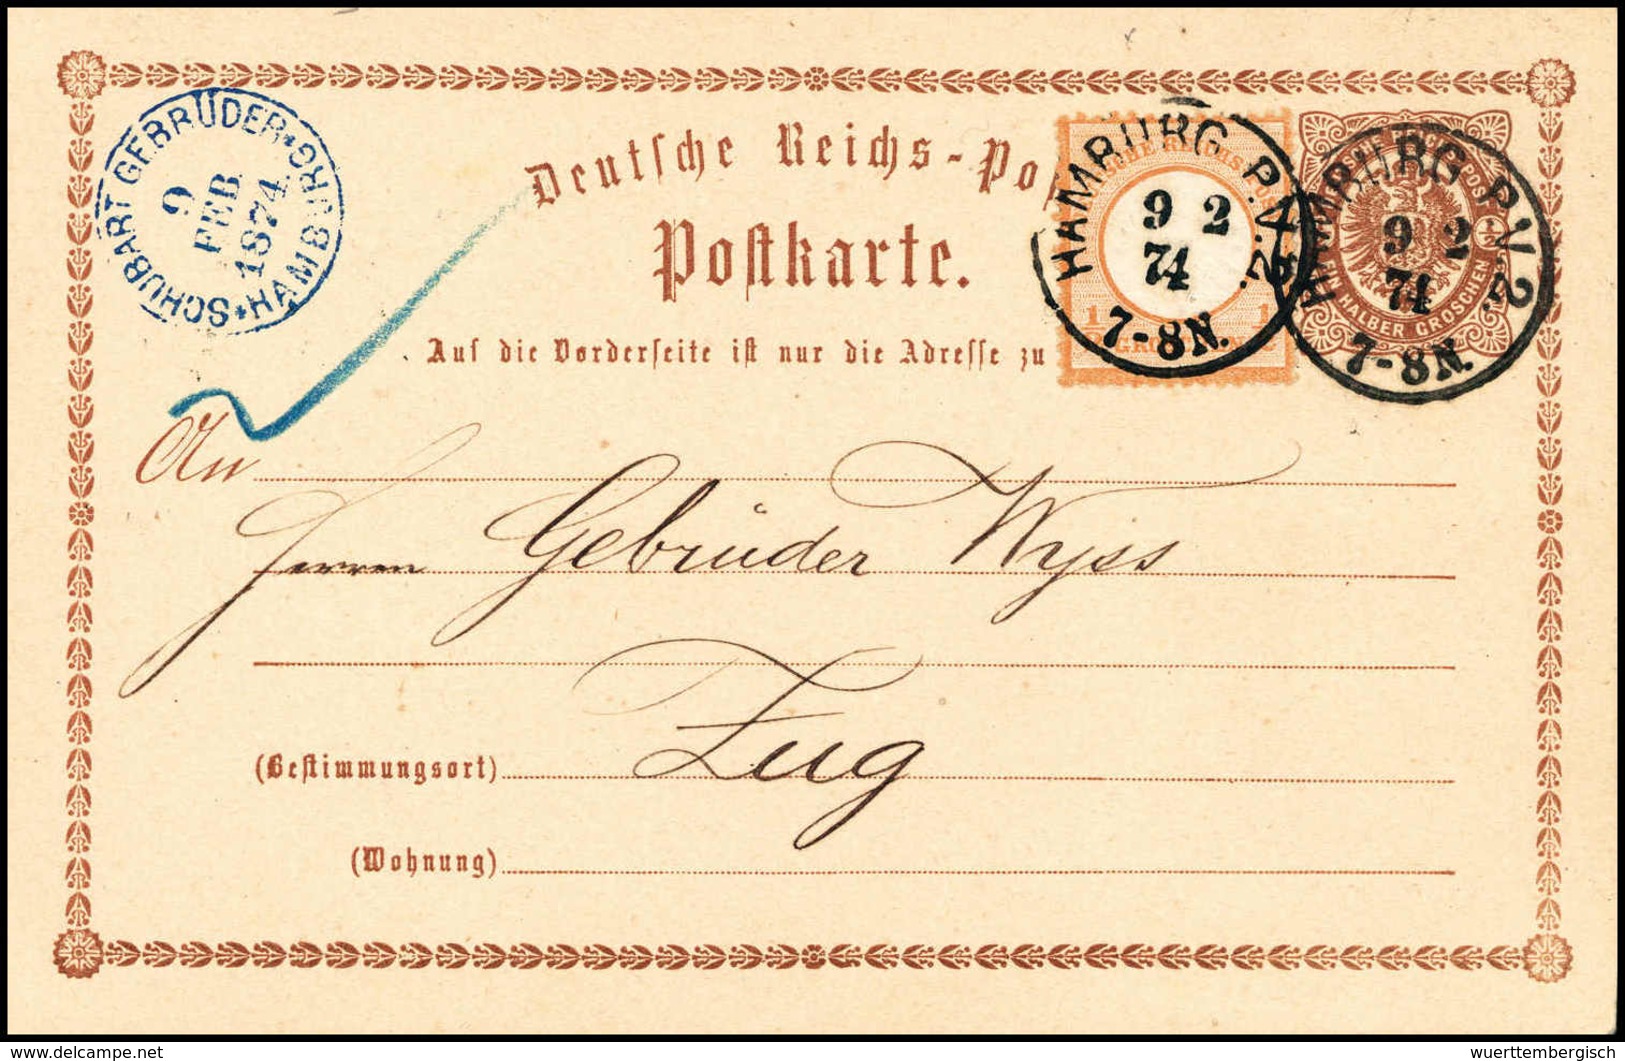 SCHUBART GEBRÜDER * HAMBURG *
9
FEB
1874
Deutsche Reichs-Po
Postkarte.
Auf die Vorderseite ist nur die Adresse zu
HAMBURG P.V. 2.
9 2
74
7-8N.
HAMBURG P.V. 2.
9 2
74
7-8N.
EIN HALBER GROSCHEN
1/2
An
Herren Gebrüder Wyss
Zug
(Bestimmungsort)
(Wohnung)
www.delcampe.net
wuerttembergisch